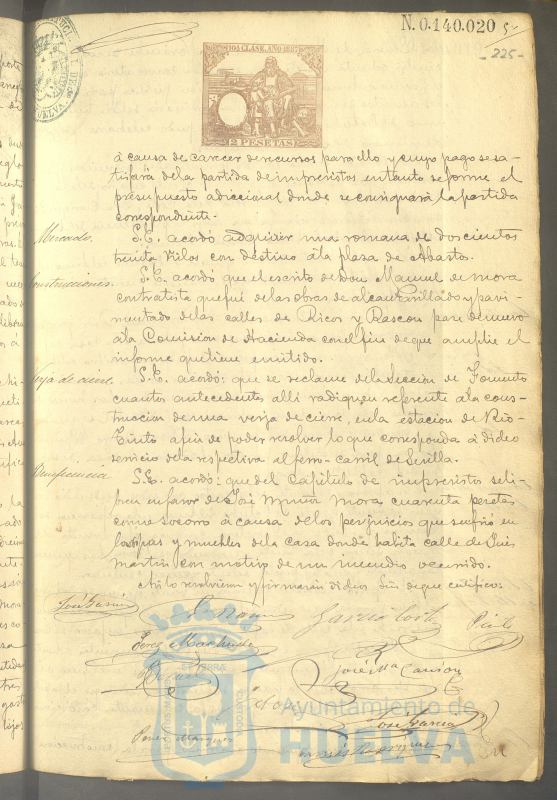 N. 0.140.020
- 225 -
10A CLASE. AÑO 1887
2 PESETAS
HUELVA
á causa de carecer de recursos para ello y cuyo pago se sa-
tisfará de la partida de imprevistos en tanto se forme el
presupuesto adiccional donde se consignará la partida
correspondiente.
Mercado. S.E. acordó adquirir una romana de doscientos
treinta Kilos, con destino á la plaza de Abastos.
Construcciones. S.E. acordó que el escrito de Don Manuel de Mora
contratista que fué de las obras de alcantarillado y pavi-
mentado de las calles de Ricos y Rascon pase de nuevo
á la Comision de Hacienda con el fin de que amplie el
informe que tiene emitido.
Verja de cierre. S.E. acordó: que se reclame de la Seccion de Fomento
cuantos antecedentes alli radiquen referente á la cons-
truccion de una verja de cierre, en la estacion de Rio-
Tinto afin de poder resolver lo que corresponda á dicho
servicio de la respectiva al ferro-carril de Sevilla.
Beneficencia. S.E. acordó: que del Capitulo de imprevistos se li-
bren en favor de José Muñoz Mora cuarenta pesetas
como socorro á causa de los perjuicios que sufrió en
las ropas y muebles de la casa donde habita calle de
Martin con motivo de un incendio ocurrido.
Así lo resolvieron y firmarán dichos Sres de que certifico:
Garcia
Perez Machado
José Ma
José Garcia
Perez
Ayuntamiento de
HUELVA